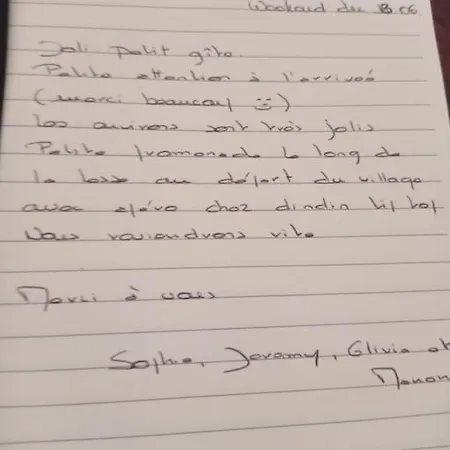 Weekend du 13.06.
Joli petit gîte.
Petite attention à l'arrivée
(merci beaucoup 😊)
Les environs sont très jolis
Petite promenade le long de
la Lesse au départ du village
avec apéro chez dindin tip top
Nous reviendrons vite
Merci à vous
Sophie, Jeremy, Olivia et
Manon